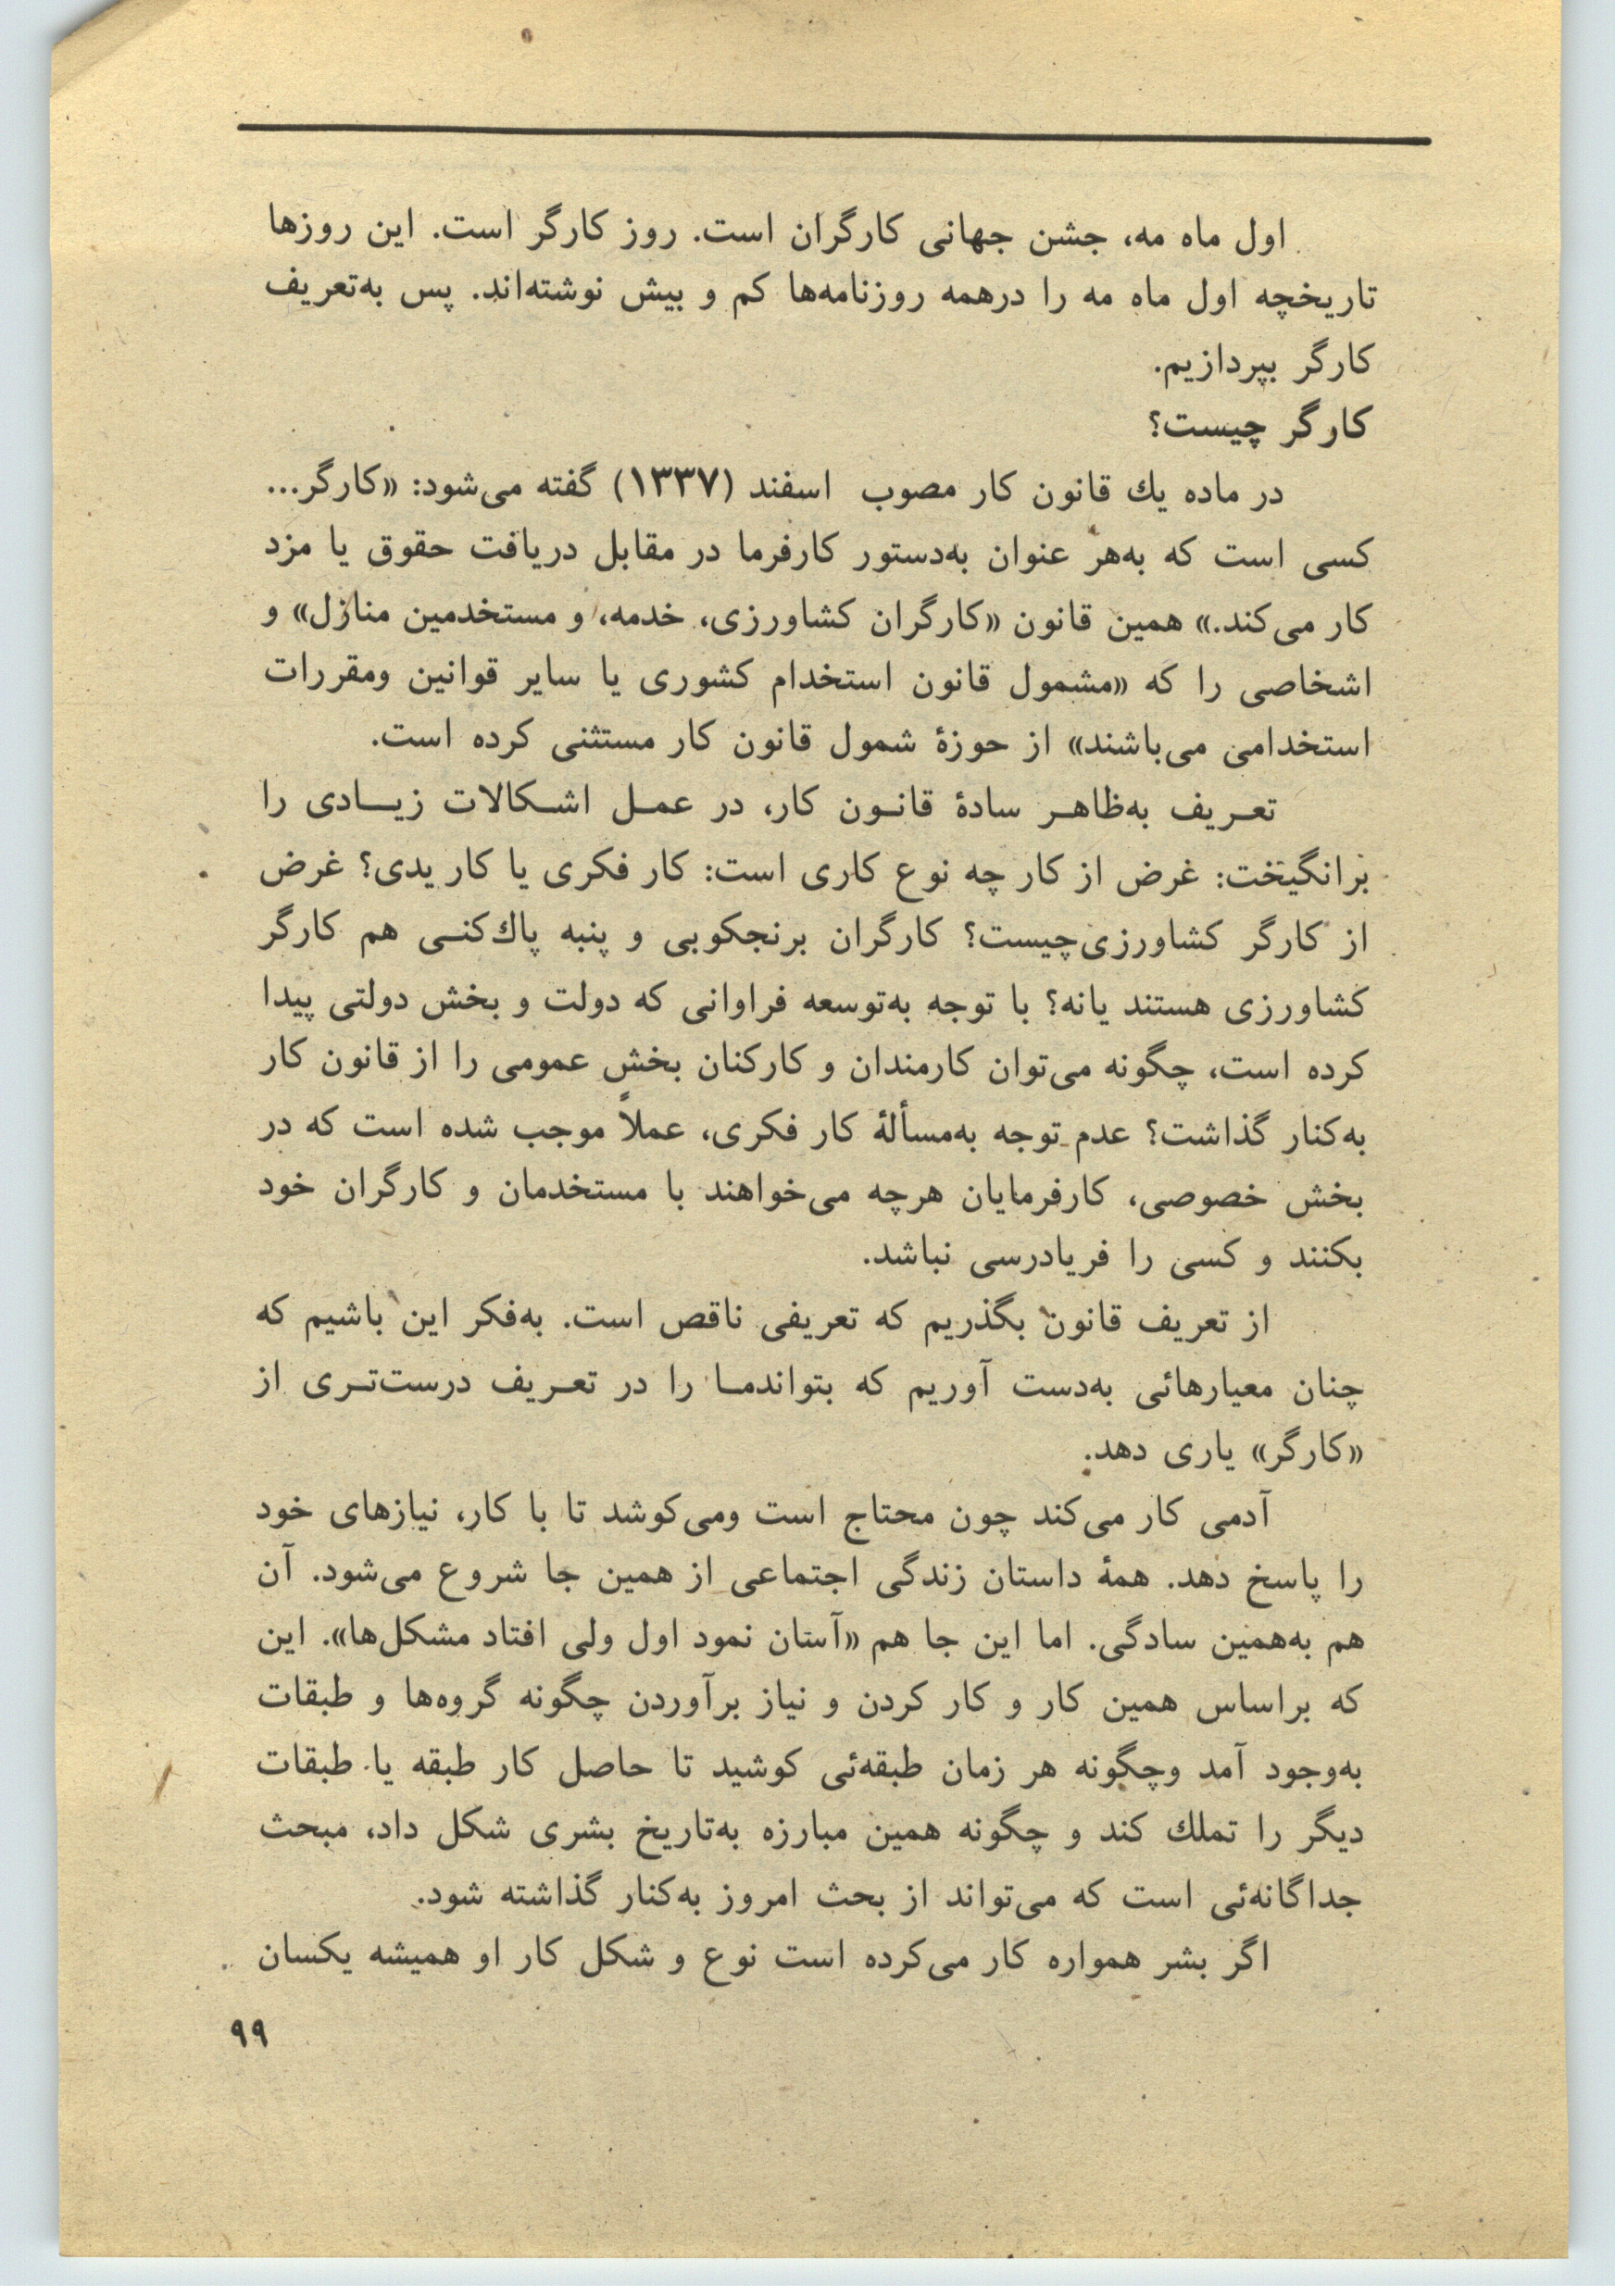 اول ماه مه، جشن جهانی کارگران است. روز کارگر است. این روزها
تاریخچه اول ماه مه را درهمه روزنامه‌ها کم و بیش نوشته‌اند. پس به‌تعریف
کارگر بپردازیم.
کارگر چیست؟
در ماده یك قانون کار مصوب اسفند (۱۳۳۷) گفته می‌شود: «کارگر...
کسی است که به‌هر عنوان به‌دستور کارفرما در مقابل دریافت حقوق یا مزد
کار می‌کند.» همین قانون «کارگران کشاورزی، خدمه، و مستخدمین منازل» و
اشخاصی را که «مشمول قانون استخدام کشوری یا سایر قوانین ومقررات
استخدامی می‌باشند» از حوزهٔ شمول قانون کار مستثنی کرده است.
تعـریف به‌ظاهـر سادهٔ قانـون کار، در عمـل اشـکالات زیـادی را
برانگیخت: غرض از کار چه نوع کاری است: کار فکری یا کار یدی؟ غرض
از کارگر کشاورزی‌چیست؟ کارگران برنجکوبی و پنبه پاك‌کنـی هم کارگر
کشاورزی هستند یانه؟ با توجه به‌توسعه فراوانی که دولت و بخش دولتی پیدا
کرده است، چگونه می‌توان کارمندان و کارکنان بخش عمومی را از قانون کار
به‌کنار گذاشت؟ عدم توجه به‌مسألهٔ کار فکری، عملاً موجب شده است که در
بخش خصوصی، کارفرمایان هرچه می‌خواهند با مستخدمان و کارگران خود
بکنند و کسی را فریادرسی نباشد.
از تعریف قانون بگذریم که تعریفی ناقص است. به‌فکر این باشیم که
چنان معیارهائی به‌دست آوریم که بتواندمـا را در تعـریف درست‌تـری از
«کارگر» یاری دهد.
آدمی کار می‌کند چون محتاج است ومی‌کوشد تا با کار، نیازهای خود
را پاسخ دهد. همهٔ داستان زندگی اجتماعی از همین جا شروع می‌شود. آن
هم به‌همین سادگی. اما این جا هم «آسان نمود اول ولی افتاد مشکل‌ها». این
که براساس همین کار و کار کردن و نیاز برآوردن چگونه گروه‌ها و طبقات
به‌وجود آمد وچگونه هر زمان طبقه‌ئی کوشید تا حاصل کار طبقه یا طبقات
دیگر را تملك کند و چگونه همین مبارزه به‌تاریخ بشری شکل داد، مبحث
جداگانه‌ئی است که می‌تواند از بحث امروز به‌کنار گذاشته شود.
اگر بشر همواره کار می‌کرده است نوع و شکل کار او همیشه یکسان
۹۹